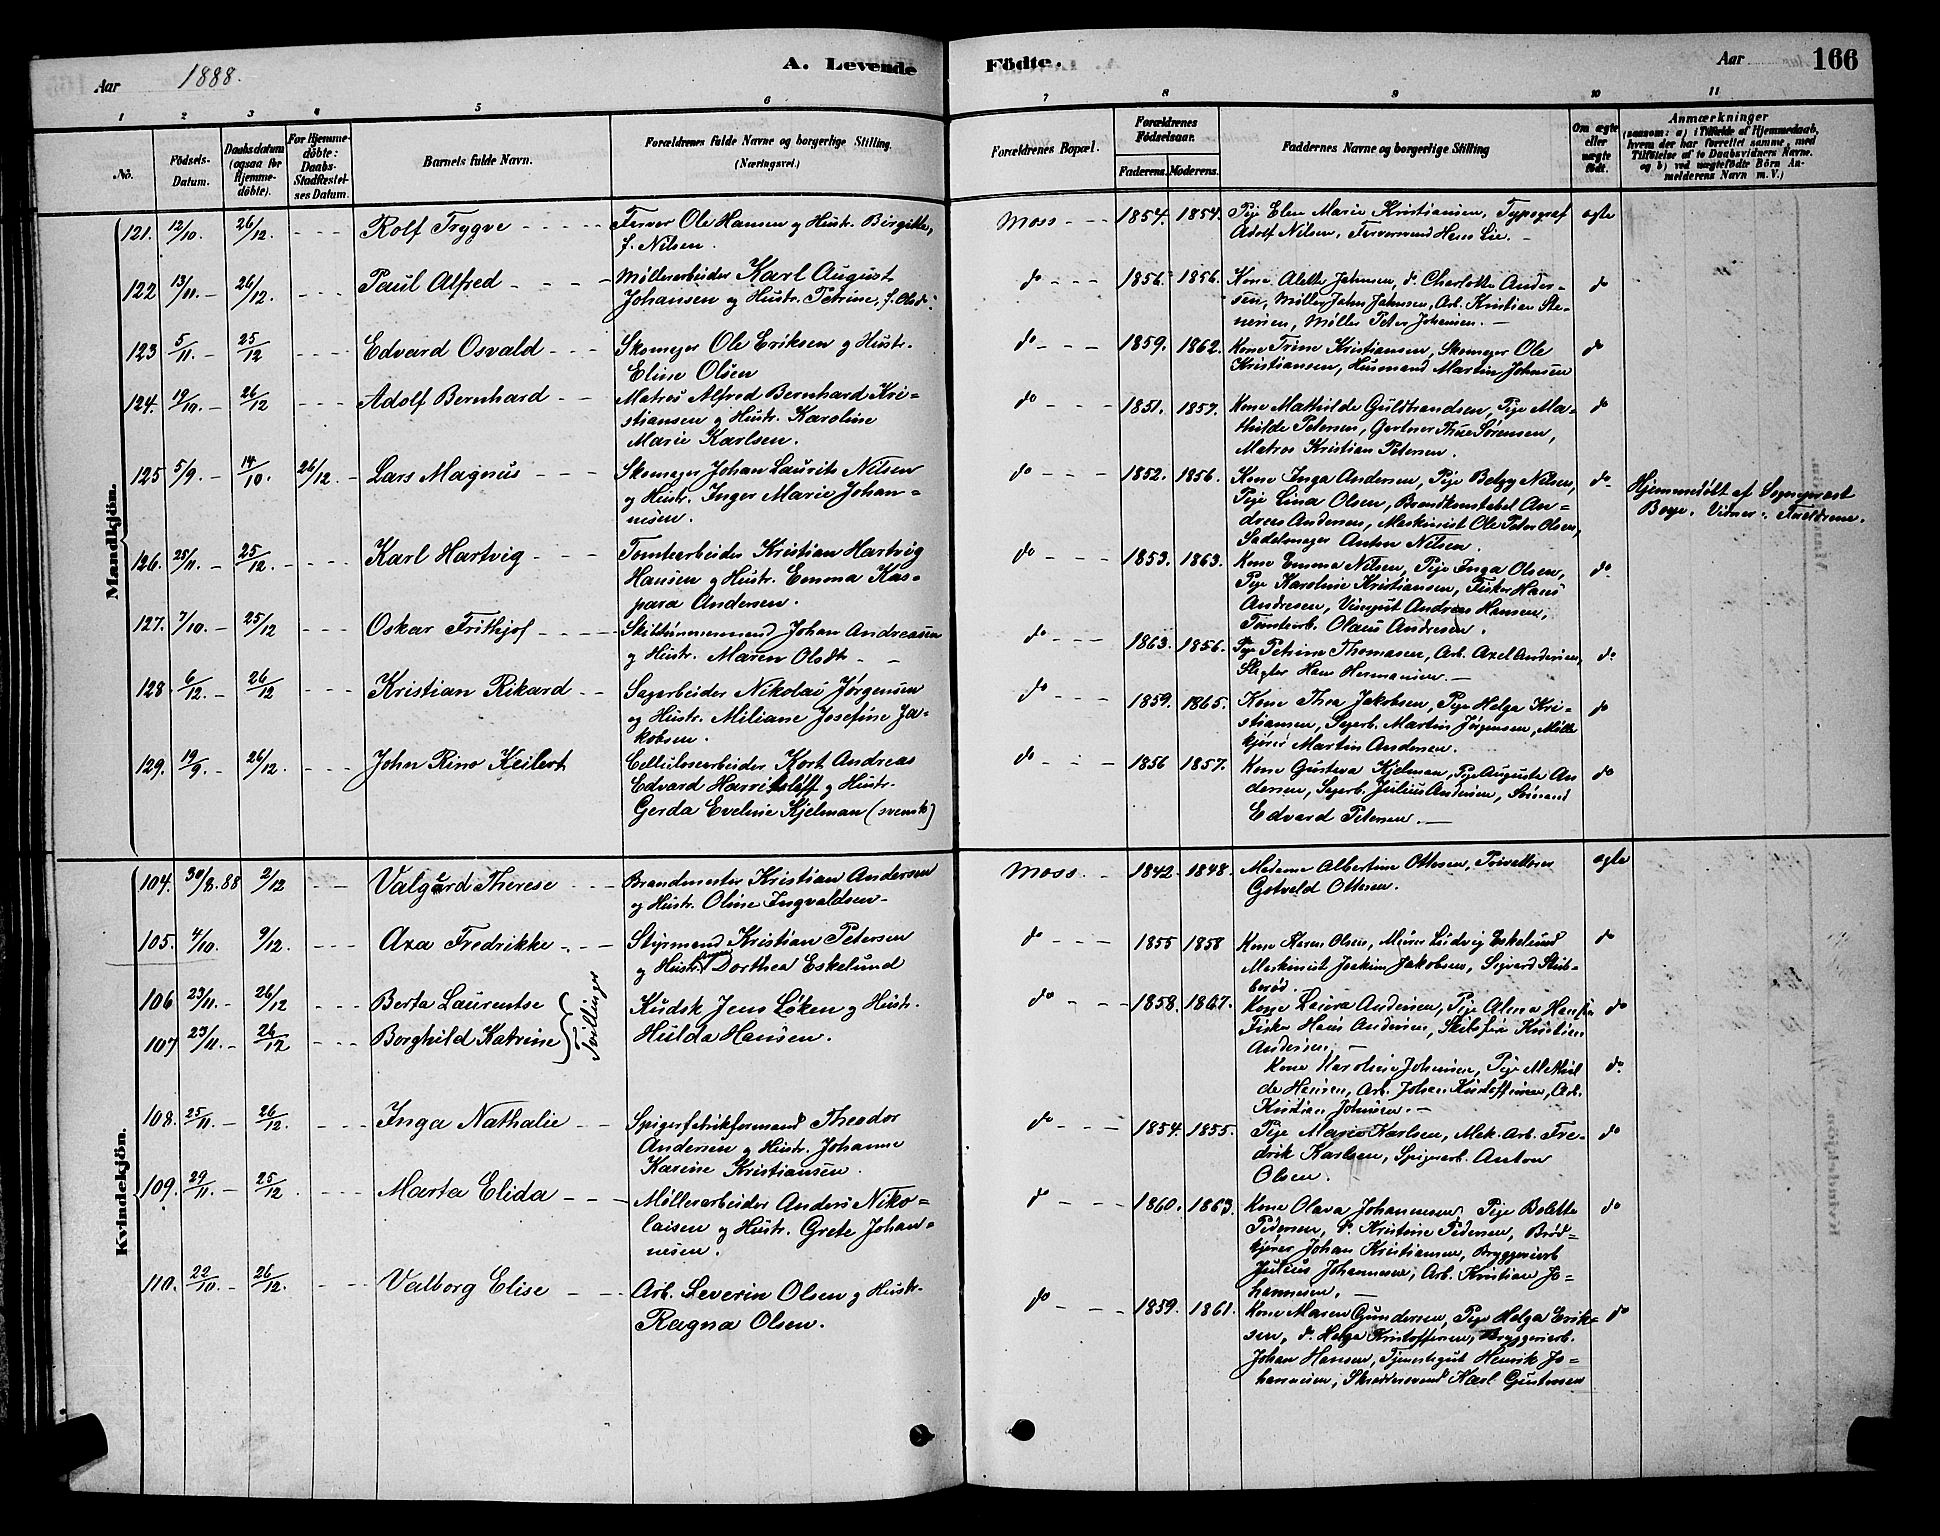 Aar 1888.
A. Levende
Födte.
Aar
166
1
2
3
4
5
6
7
8
9
10
11
No.
Födsels-
Datum.
Daabsdatum
(ogsaa for
Hjemme-
döbte).
For Hjemme-
döbte:
Daabs-
Stadfæstel-
ses Datum.
Barnets fulde Navn.
Forældrenes fulde Navne og borgerlige Stilling.
(Næringsvei.)
Forældrenes Bopæl.
Forældrenes
Födselsaar.
Faderens.
Moderens.
Faddernes Navne og borgerlige Stilling
Om ægte
eller
uægte
födt.
Anmærkninger
(saasom: a) i Tilfælde af Hjemmedaab,
hvem der har forrettet samme, med
Tilföielse af to Daabsvidners Navne.
og b) ved uægtefödte Börn An-
melderens Navn m. V.)
Mandkjön.
121. 12/10. 26/12. Rolf Trygve
Farver Ole Hansen og Hustr. Birgitte,
f. Nilsen.
Moss 1854. 1854.
Pige Elen Marie Kristiansen, Typograf
Adolf Nilsen, Farversvend Hans Lie.
ægte
122 13/11. 26/12. Paul Alfred
Møllerarbeider Karl August
Johansen og Hustr. Petrine, f. Olsdr.
do 1856. 1856.
Kone Alette Jahnsen, do. Charlotte Ander-
sen, Møller John Jahnsen, Arb. Kristian Ste-
nersen, Møller Peter Johansen.
do
123 5/11. 25/12 Edvard Osvald
Skomager Ole Eriksen og Hustr.
Elise Olsen
do 1859. 1862.
Kone Trine Kristiansen, Skomager Ole
Kristiansen, Husmand Martin Johnsen
do
124. 19/10. 26/12 Adolf Bernhard
Matros Alfred Bernhard Kri-
stiansen og Hustr. Karoline
Marie Karlsen.
do 1851. 1857.
Kone Mathilde Guldbrandsen, Pige Ma-
thilde Petersen, Gartner Thue Sørensen,
Matros Kristian Petersen.
do
125 5/9. 14/10. 26/12. Lars Magnus
Skomager Johan Laurits Nilsen
og Hustr. Inger Marie Johan-
nesen.
do 1852. 1856.
Kone Inga Andersen, Pige Betzy Nilsen,
Pige Lina Olsen, Brandkonstabel An-
dreas Andersen, Maskinist Ole Peter Olsen,
Sadelmager Anton Nilsen.
do.
Hjemmedøbt af Sogneprest
Boye. Vidner: Forældrene.
126. 25/11. 25/12. Karl Hartvig
Tomtearbeider Kristian Hartvig
Hansen og Hustr. Emma Kas-
para Andersen.
do 1853. 1863.
Kone Emma Nilsen, Pige Inga Olsen,
Pige Karoline Kristiansen, Fisker Hans
Andresen, Andreas Hansen,
Tomtearb. Olaus Andresen.
do.
127. 7/10. 25/12 Oskar Frithjof
Skiltømmermand Johan Andreasen
og Hustr. Maren Olsdtr.
do 1863. 1856.
Pige Petrine Thomasen, Arb. Axel Andersen,
Slagter Hans Hermansen.
do.
128. 6/12. 26/12 Kristian Rikard
Sagarbeider Nikolai Jørgensen
og Hustr. Miliane Josefine Ja-
kobsen.
do 1859. 1865.
Kone Thea Jakobsen, Pige Helga Kri-
stiansen, Sagarb. Martin Jørgensen, Mølle-
kjører Martin Andersen.
do
129. 19/9. 26/12. John Rino Keilert
Cellulosearbeider Kort Andreas
Edvard Harritsleff og Hustr.
Gerda Eveline Kjelman (svensk)
do 1856 1857.
Kone Gustava Kjelman, Pige Augusta An
dersen, Sagarb. Julius Andersen, Sømand
Edvard Petersen.
do
Kvindekjön.
104. 30/8.88 2/12 Valgerd Therese
Brandmester Kristian Andersen
og Hustr. Oline Ingvaldsen
Moss. 1842. 1848.
Madame Albertine Ottesen,
Gotvald Ottesen.
ægte
105. 4/10. 9/12. Axa Fredrikke
Styrmand Kristian Petersen
og Hustr. Dorthea Eskelund
do 1855 1858
Kone Karen Olsen, Murer Ludvig Eskelund
Maskinist Joakim Jakobsen, Sigvard Stub-
berød.
do
106 23/11. 26/12 Berta Laurentse
107 23/11. 26/12 Borghild Katrine
Tvillinger
Kudsk Jens Løken og Hustr.
Hulda Hansen.
do 1858. 1867.
Kone Laura Andersen, Pige Alma Hansen
Fisker Hans Andersen, Kristian
Andersen.
do
Kone Karoline Johansen, Pige Mathil
de Hansen, Arb. Johan Kristoffersen, Arb.
Kristian Johnsen.
do.
108. 25/11. 26/12. Inga Nathalie
Spigerfabrikformand Theodor
Andersen og Hustr. Johanne
Karine Kristiansen.
do 1854. 1855.
Pige Marie Karlsen, Mek. Arb. Fre-
drik Karlsen, Spigerarb. Anton
Olsen.
do
109. 29/11. 25/12 Marta Elida
Møllerarbeider Anders Niko-
laisen og Hustr. Grete Johan-
nesen.
do 1860. 1863.
Kone Olava Johannesen, Pige Bolette
Pedersen, do. Kristine Pedersen, Brød-
kjører Johan Kristiansen, Bryggeriarb
Julius Johannesen, Arb. Kristian Jo-
hannesen.
do
110. 22/10. 26/12. Valborg Elise
Arb. Severin Olsen og Hustr.
Ragna Olsen.
do 1859. 1861.
Kone Maren Gundersen, Pige Helga Erik-
sen, do. Helga Kristoffersen, Bryggeriarb.
Johan Hansen, Tjenestegut Henrik Jo-
hannesen, Skræddersvend Karl Gustavsen
do